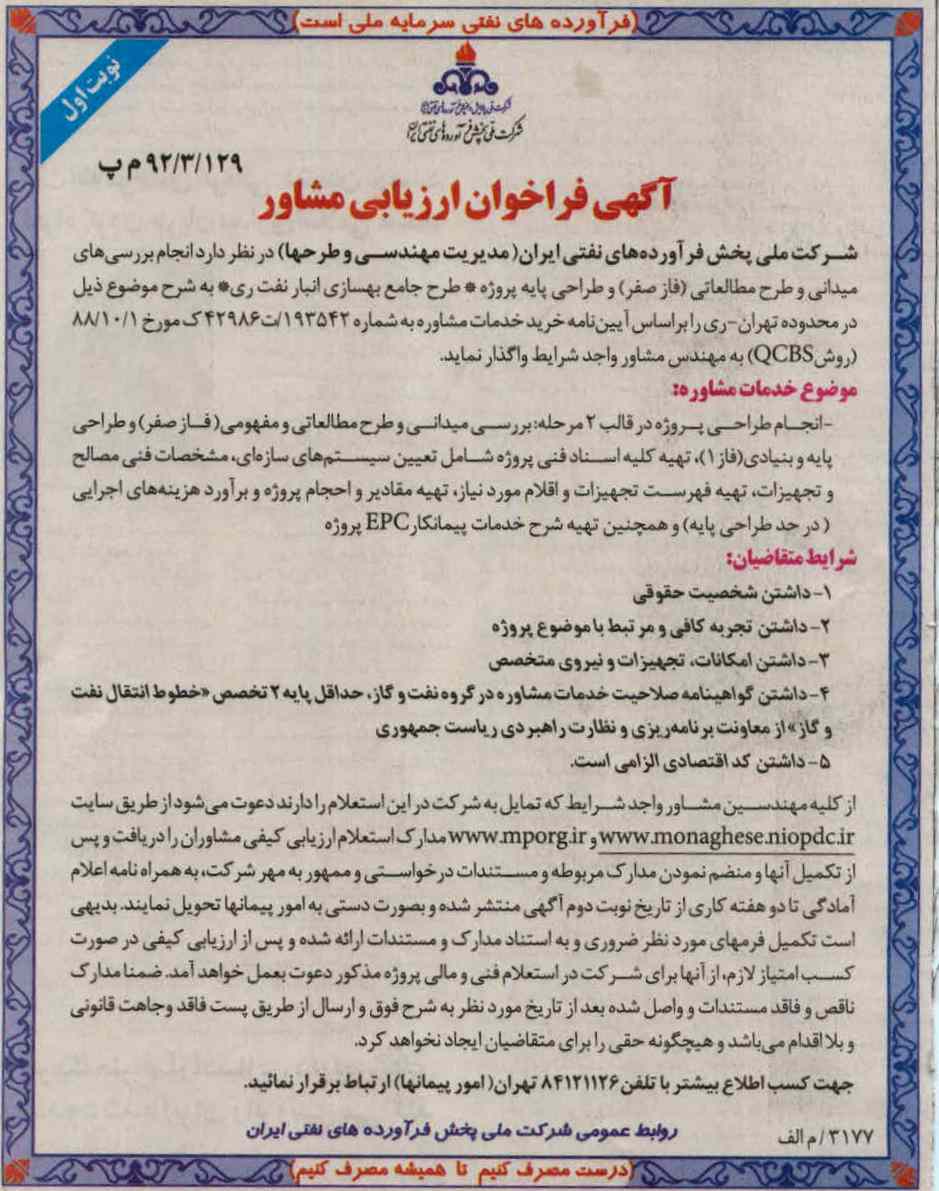 (فرآورده های نفتی سرمایه ملی است)
نوبت اول
شرکت ملی پالایش و پخش فرآورده‌های نفتی ایران
شرکت ملی پخش فرآورده‌های نفتی ایران
۹۲/۳/۱۲۹ م پ
آگهی فراخوان ارزیابی مشاور
شرکت ملی پخش فرآورده‌های نفتی ایران( مدیریت مهندسی و طرحها) در نظر دارد انجام بررسی‌های
میدانی و طرح مطالعاتی (فاز صفر) و طراحی پایه پروژه * طرح جامع بهسازی انبار نفت ری* به شرح موضوع ذیل
در محدوده تهران-ری را براساس آیین‌نامه خرید خدمات مشاوره به شماره ۱۹۳۵۴۲/ت۴۲۹۸۶ک مورخ ۸۸/۱۰/۱
(روش QCBS) به مهندس مشاور واجد شرایط واگذار نماید.
موضوع خدمات مشاوره:
-انجام طراحی پروژه در قالب ۲ مرحله: بررسی میدانی و طرح مطالعاتی و مفهومی( فاز صفر) و طراحی
پایه و بنیادی(فاز ۱)، تهیه کلیه اسناد فنی پروژه شامل تعیین سیستم‌های سازه‌ای، مشخصات فنی مصالح
و تجهیزات، تهیه فهرست تجهیزات و اقلام مورد نیاز، تهیه مقادیر و احجام پروژه و برآورد هزینه‌های اجرایی
( در حد طراحی پایه) و همچنین تهیه شرح خدمات پیمانکار EPC پروژه
شرایط متقاضیان:
۱- داشتن شخصیت حقوقی
۲- داشتن تجربه کافی و مرتبط با موضوع پروژه
۳- داشتن امکانات، تجهیزات و نیروی متخصص
۴- داشتن گواهینامه صلاحیت خدمات مشاوره در گروه نفت و گاز، حداقل پایه ۲ تخصص «خطوط انتقال نفت
و گاز» از معاونت برنامه‌ریزی و نظارت راهبردی ریاست جمهوری
۵- داشتن کد اقتصادی الزامی است.
از کلیه مهندسین مشاور واجد شرایط که تمایل به شرکت در این استعلام را دارند دعوت می‌شود از طریق سایت
www.monaghese.niopdc.ir و www.mporg.ir مدارک استعلام ارزیابی کیفی مشاوران را دریافت و پس
از تکمیل آنها و منضم نمودن مدارک مربوطه و مستندات درخواستی و ممهور به مهر شرکت، به همراه نامه اعلام
آمادگی تا دو هفته کاری از تاریخ نوبت دوم آگهی منتشر شده و بصورت دستی به امور پیمانها تحویل نمایند. بدیهی
است تکمیل فرمهای مورد نظر ضروری و به استناد مدارک و مستندات ارائه شده و پس از ارزیابی کیفی در صورت
کسب امتیاز لازم، از آنها برای شرکت در استعلام فنی و مالی پروژه مذکور دعوت بعمل خواهد آمد. ضمنا مدارک
ناقص و فاقد مستندات و واصل شده بعد از تاریخ مورد نظر به شرح فوق و ارسال از طریق پست فاقد وجاهت قانونی
و بلا اقدام می‌باشد و هیچگونه حقی را برای متقاضیان ایجاد نخواهد کرد.
جهت کسب اطلاع بیشتر با تلفن ۸۴۱۲۱۱۲۶ تهران( امور پیمانها) ارتباط برقرار نمائید.
روابط عمومی شرکت ملی پخش فرآورده های نفتی ایران
۳۱۷۷/ م الف
(درست مصرف کنیم تا همیشه مصرف کنیم)